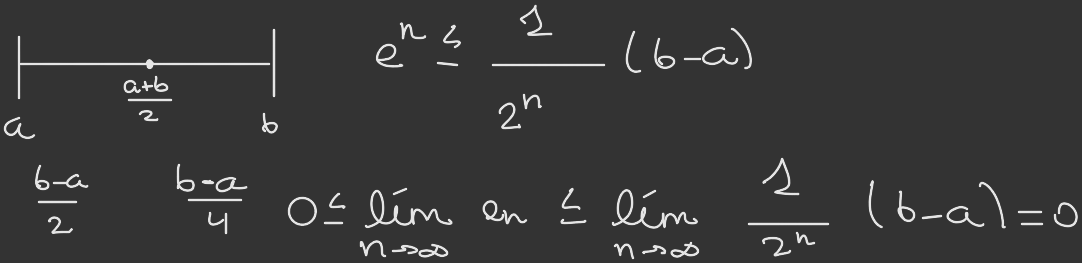 a (a+b)/2 b
e^n ≤ 1/2^n (b-a)
(b-a)/2 (b-a)/4 0 ≤ lím n→∞ en ≤ lím n→∞ 1/2^n (b-a) = 0